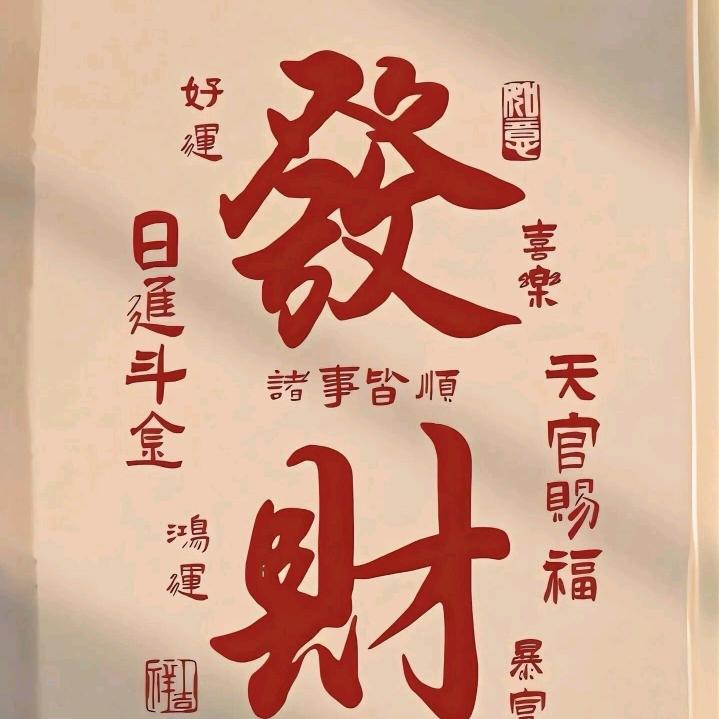 發財
好運
如意
喜樂
日進斗金
諸事皆順
天官賜福
鴻運
吉祥
暴富